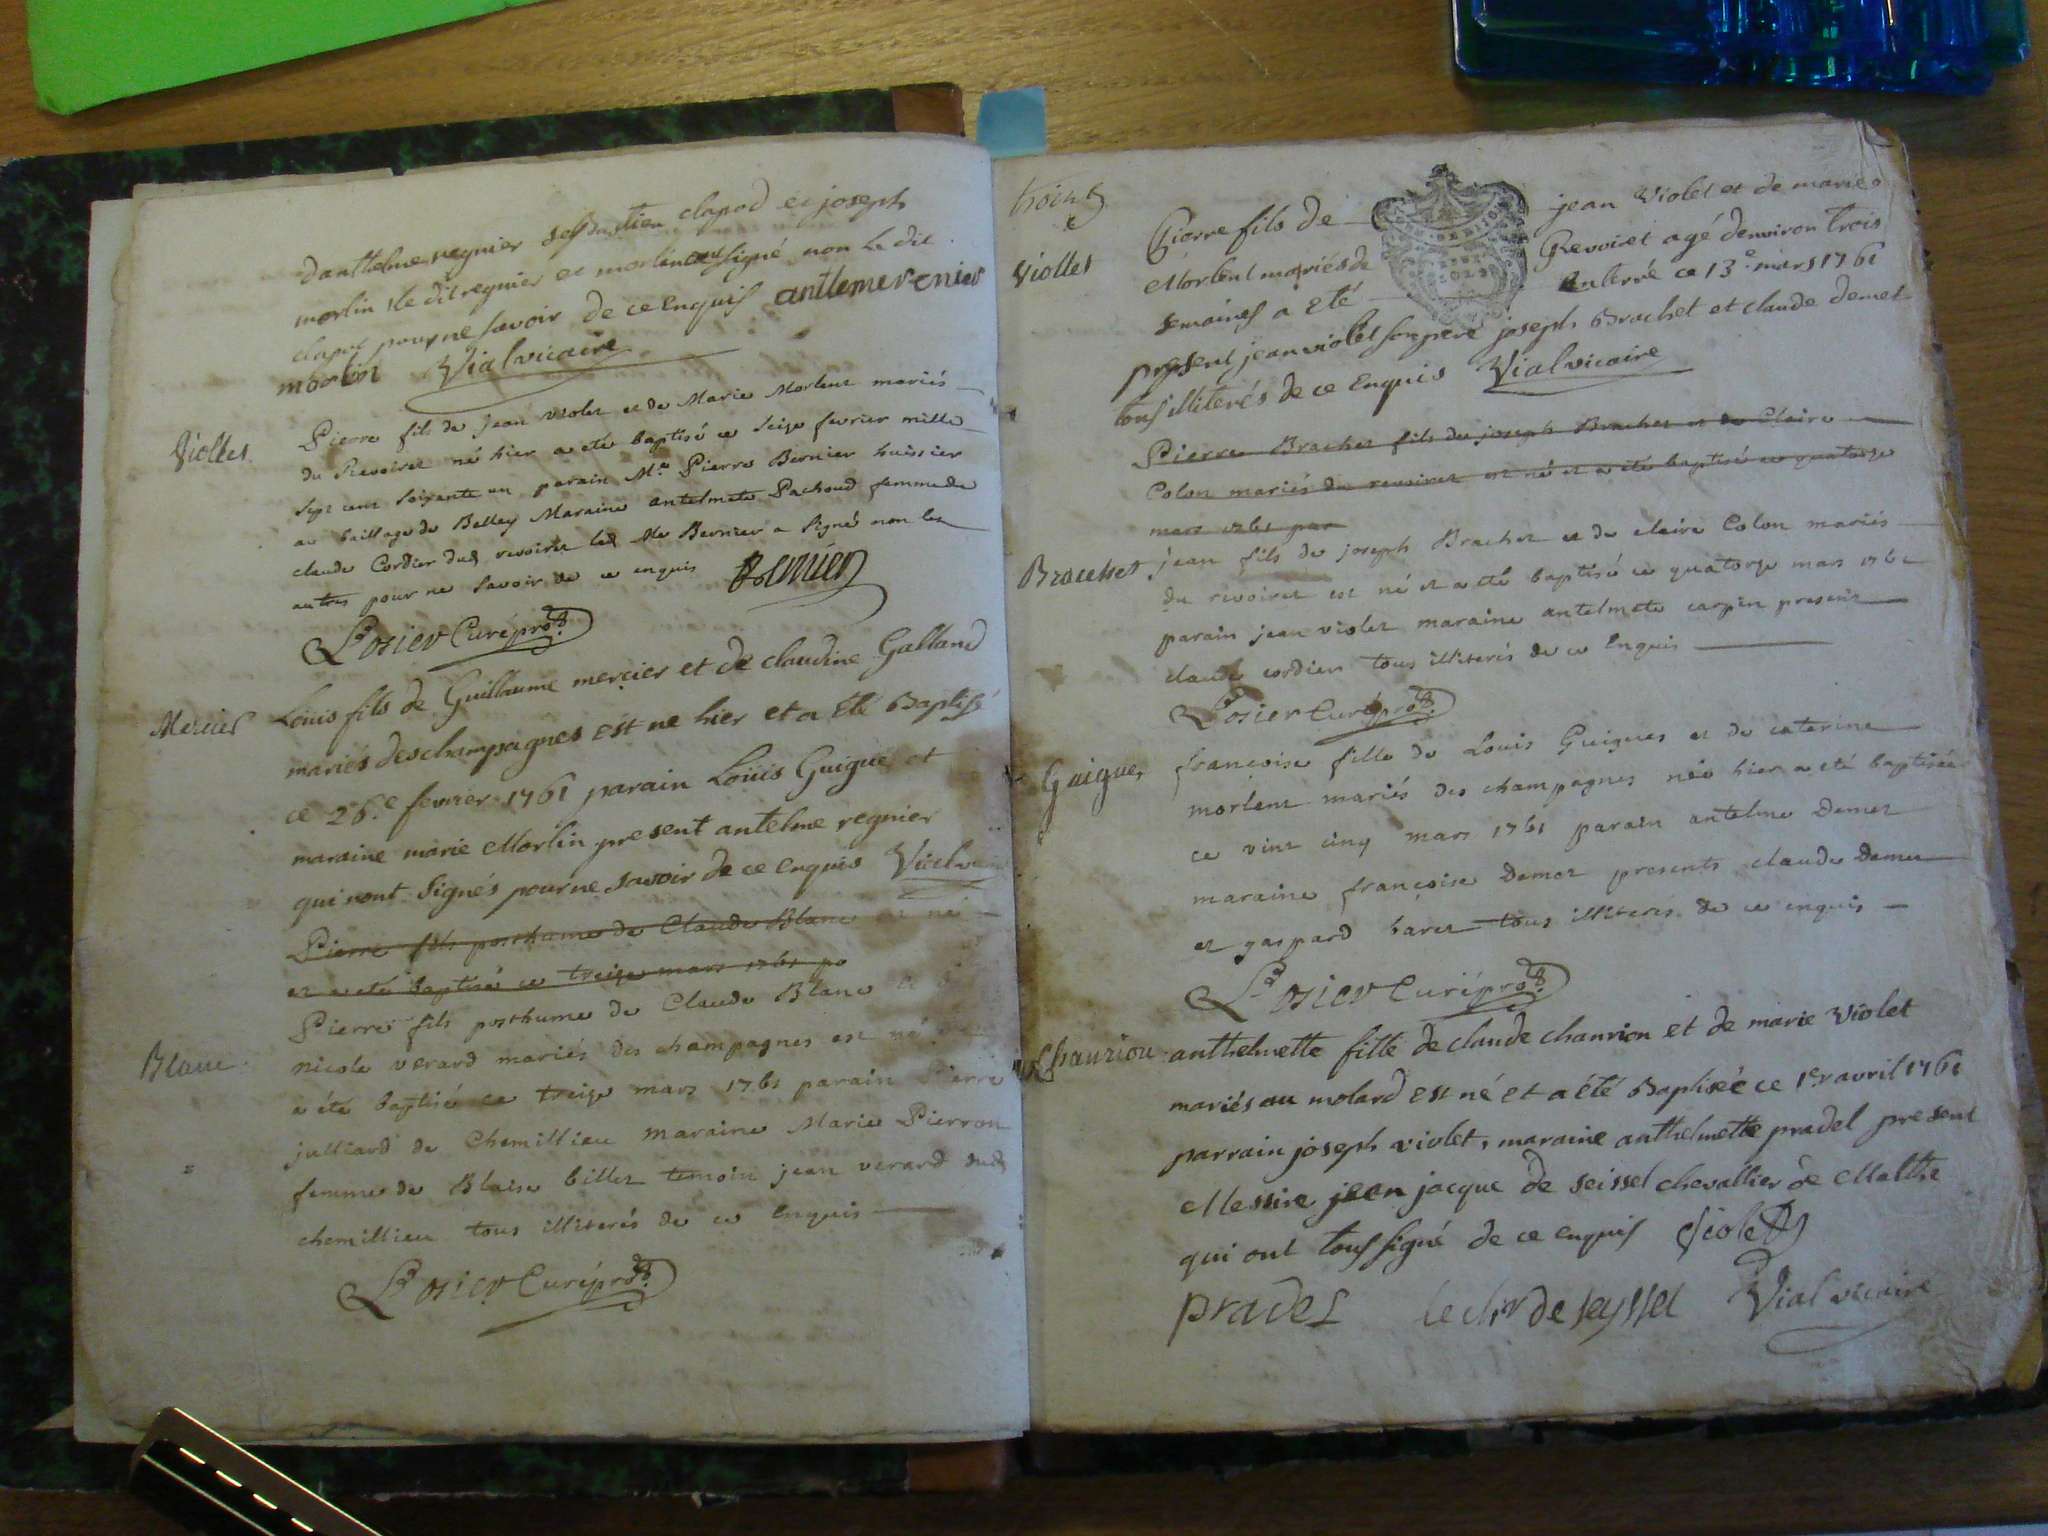 danthelme regnier sebastien clapod et joseph
morlin le dit regnier et morlin ont signé non le dit
clapod pour ne savoir de ce enquis antlemerenier
morlin Vial vicaire
Violles
Pierre fils de Jean Violet et de Marie Morlent mariés
du Revoiret né hier a eté baptisé ce seize fevrier mille
sept cent soixante un parain Me Pierre Bernier huissier
au baillage de Belley Maraine antelmete Pachoud femme de
claude Cordier dud revoiret led Me Bernier a signé non les
autres pour ne savoir de ce enquis Bernier
Losier Curé
Mercier
Loüis fils de Guillaume mercier et de claudine Galland
mariés des champagnes est ne hier et a été Baptisé
ce 26.e fevrier 1761 parain Loüis Guigue et
maraine marie Morlin present antelme regnier
qui nont signés pour ne savoir de ce enquis Vial
Pierre fils posthume de Claude Blanc est né
et a eté baptisé ce treize mars 1761 pa
Blanc
Pierre fils posthume de Claude Blanc et
nicole verard mariés des champagnes est né
a été baptisé ce treize mars 1761 parain Pierre
julliard de Chemillieu maraine Marie Pierron
femme de Blaise billet temoin jean verard dud
chemillieu tous illiterés de ce enquis
Losier Curé
Violles
Pierre fils de jean Violet et de marie
Morlent mariés de Revoiret agé denviron trois
semaines a eté Enterré ce 13.e mars 1761
present jean violet son pere joseph Brachet et claude demet
tous illiterés de ce enquis Vial vicaire
Pierre Brachet fils de joseph Brachet et de Claire
Colon mariés du revoiret est né et a eté baptisé ce quatorze
mars 1761 par
Bracehet
jean fils de joseph Brachet et de claire Colon mariés
du revoiret est né et a eté baptisé ce quatorze mars 1761
parain jean violet maraine antelmete carpin present
claude cordier tous illiterés de ce enquis
Losier Curé
Guigues
françoise fille de Louis Guigues et de caterine
morlent mariés des champagnes née hier a eté baptisée
ce vint cinq mars 1761 parain antelme Demet
maraine françoise Demet presents claude Demet
et gaspard baret tous illiterés de ce enquis
Losier Curé
Chanrion
anthelmette fille de claude chanrion et de marie Violet
mariés au molard est né et a été Baptisée ce 1er avril 1761
parrain joseph violet, maraine anthelmette pradel present
Messire jean jacque de seissel chevallier de Malthe
qui ont tous signé de ce enquis Violet
pradel le chr de seyssel Vial vicaire